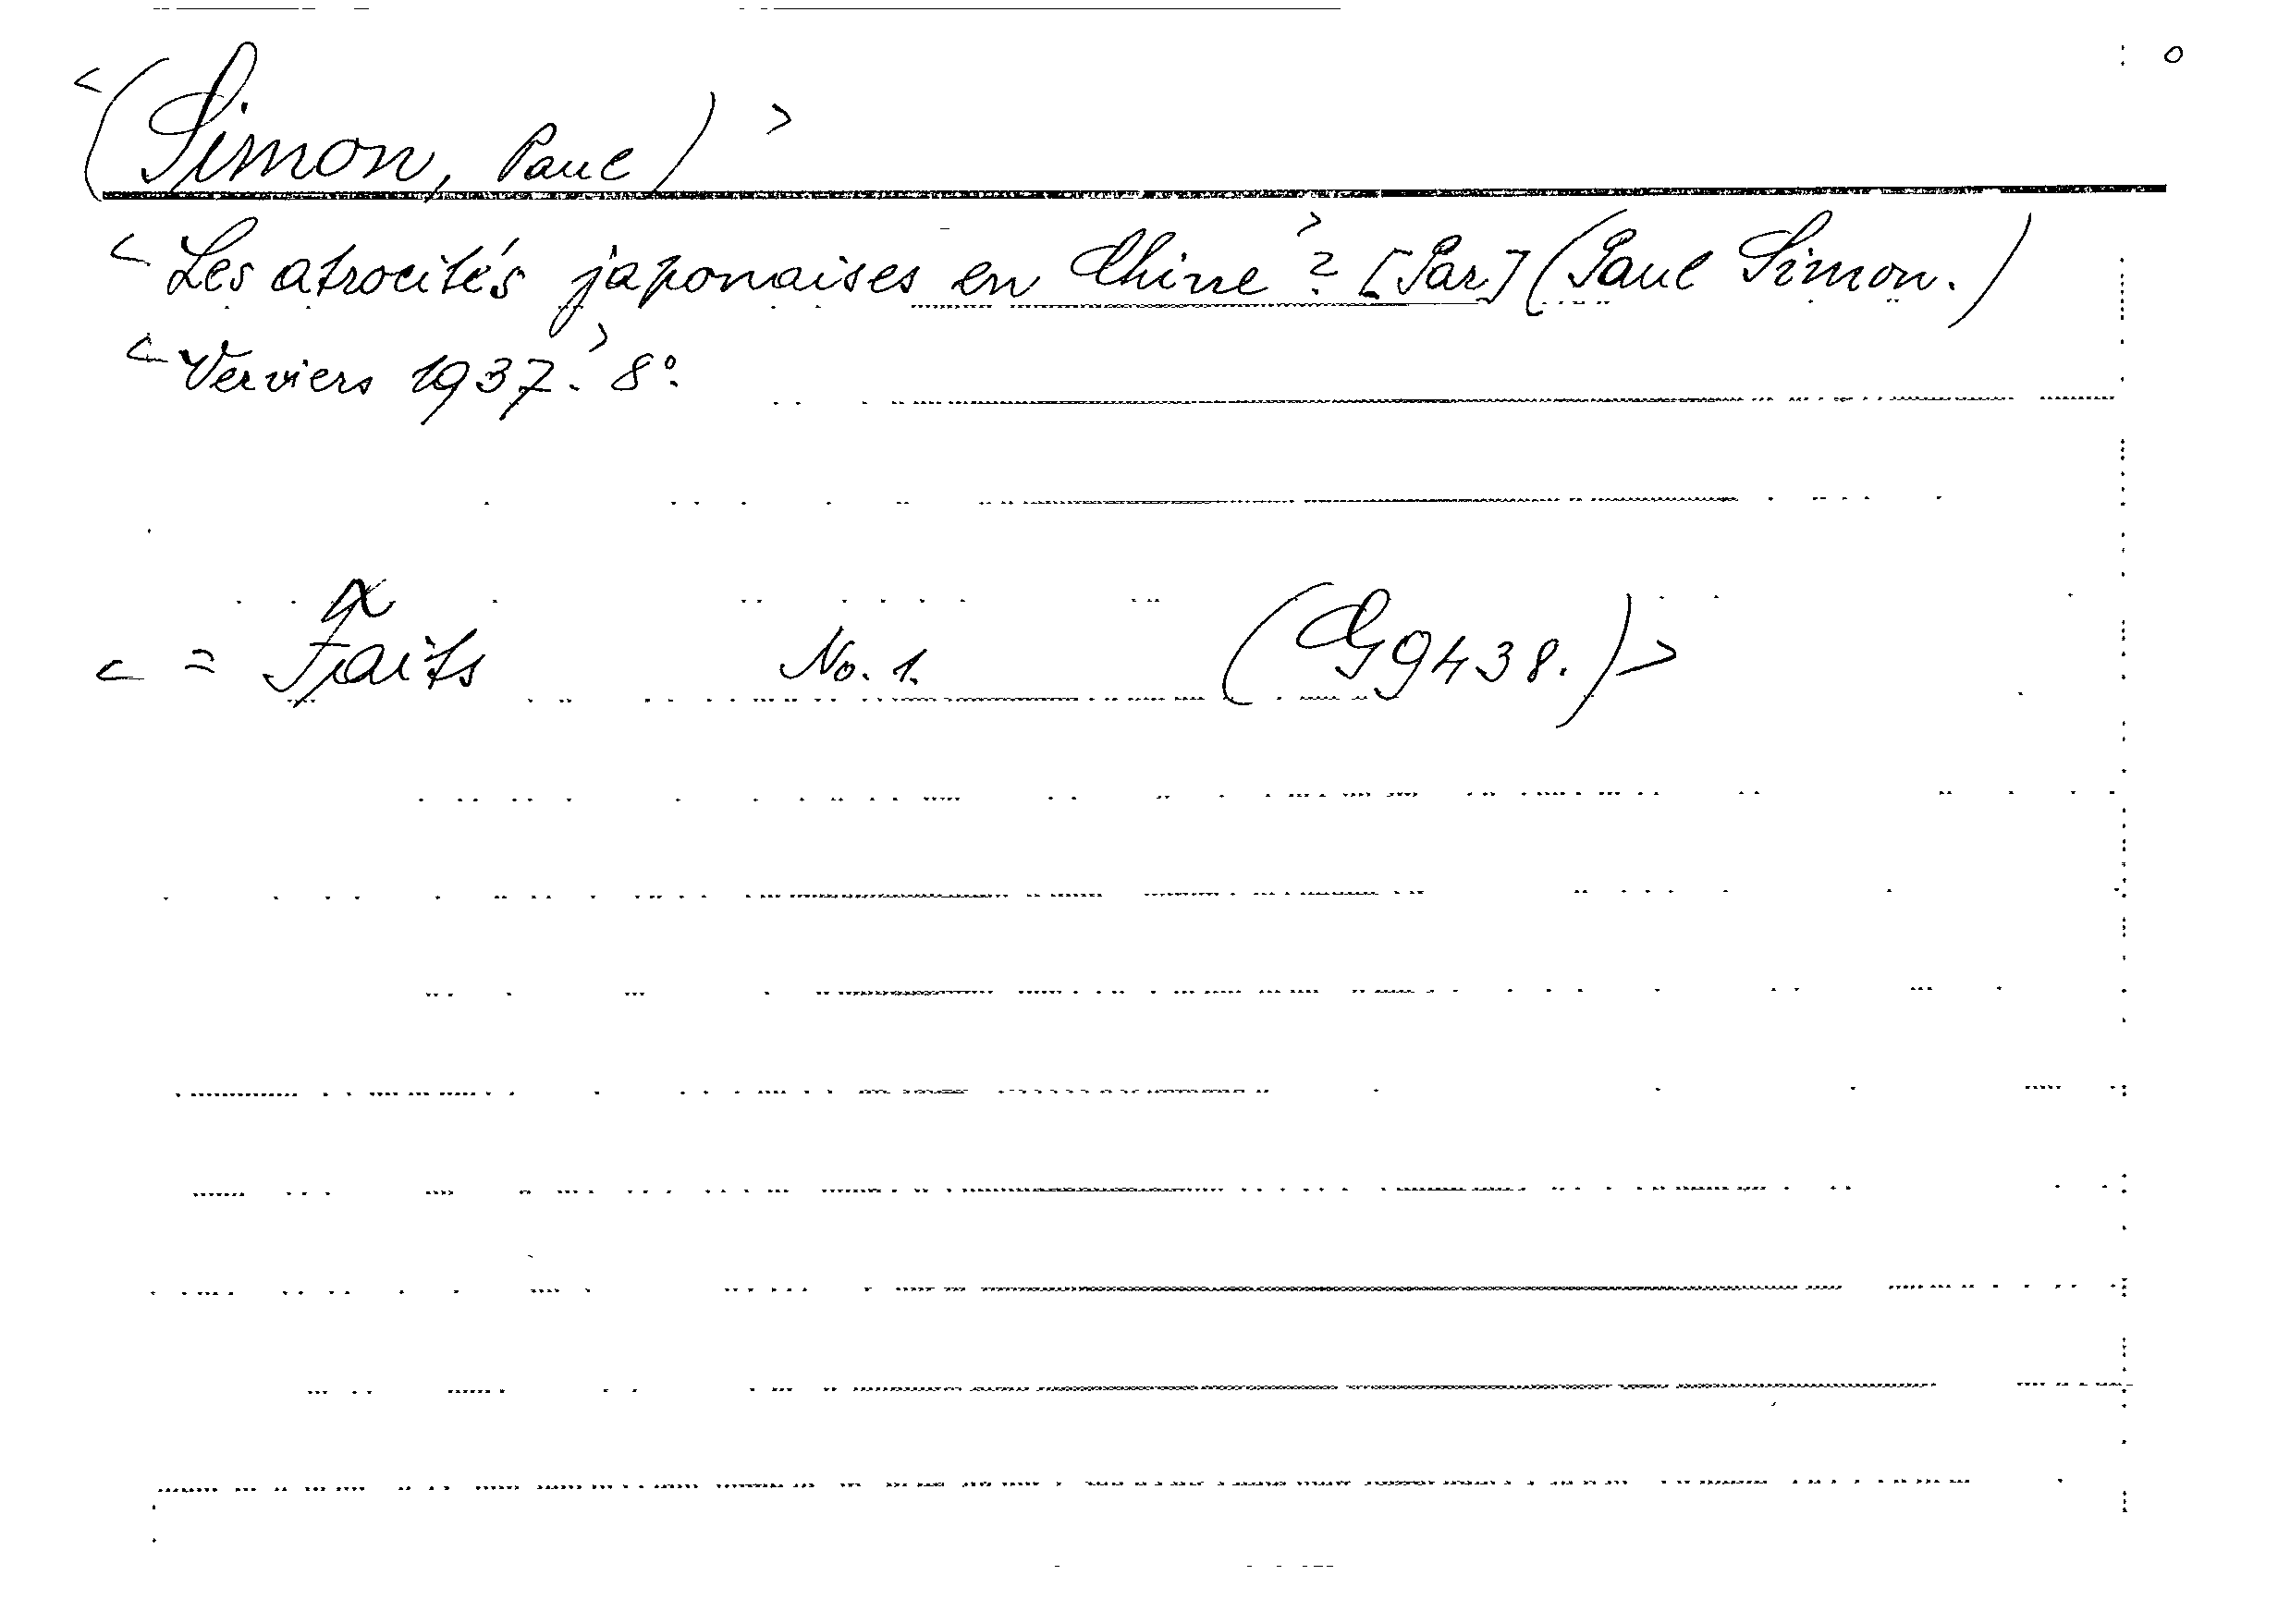 <(Simon, Paul)>
<Les atrocités japonaises en Chine>? [Par] (Paul Simon.)
<Verviers 1937.> 8°.
<= Faits No. 1. (G 9438.)>